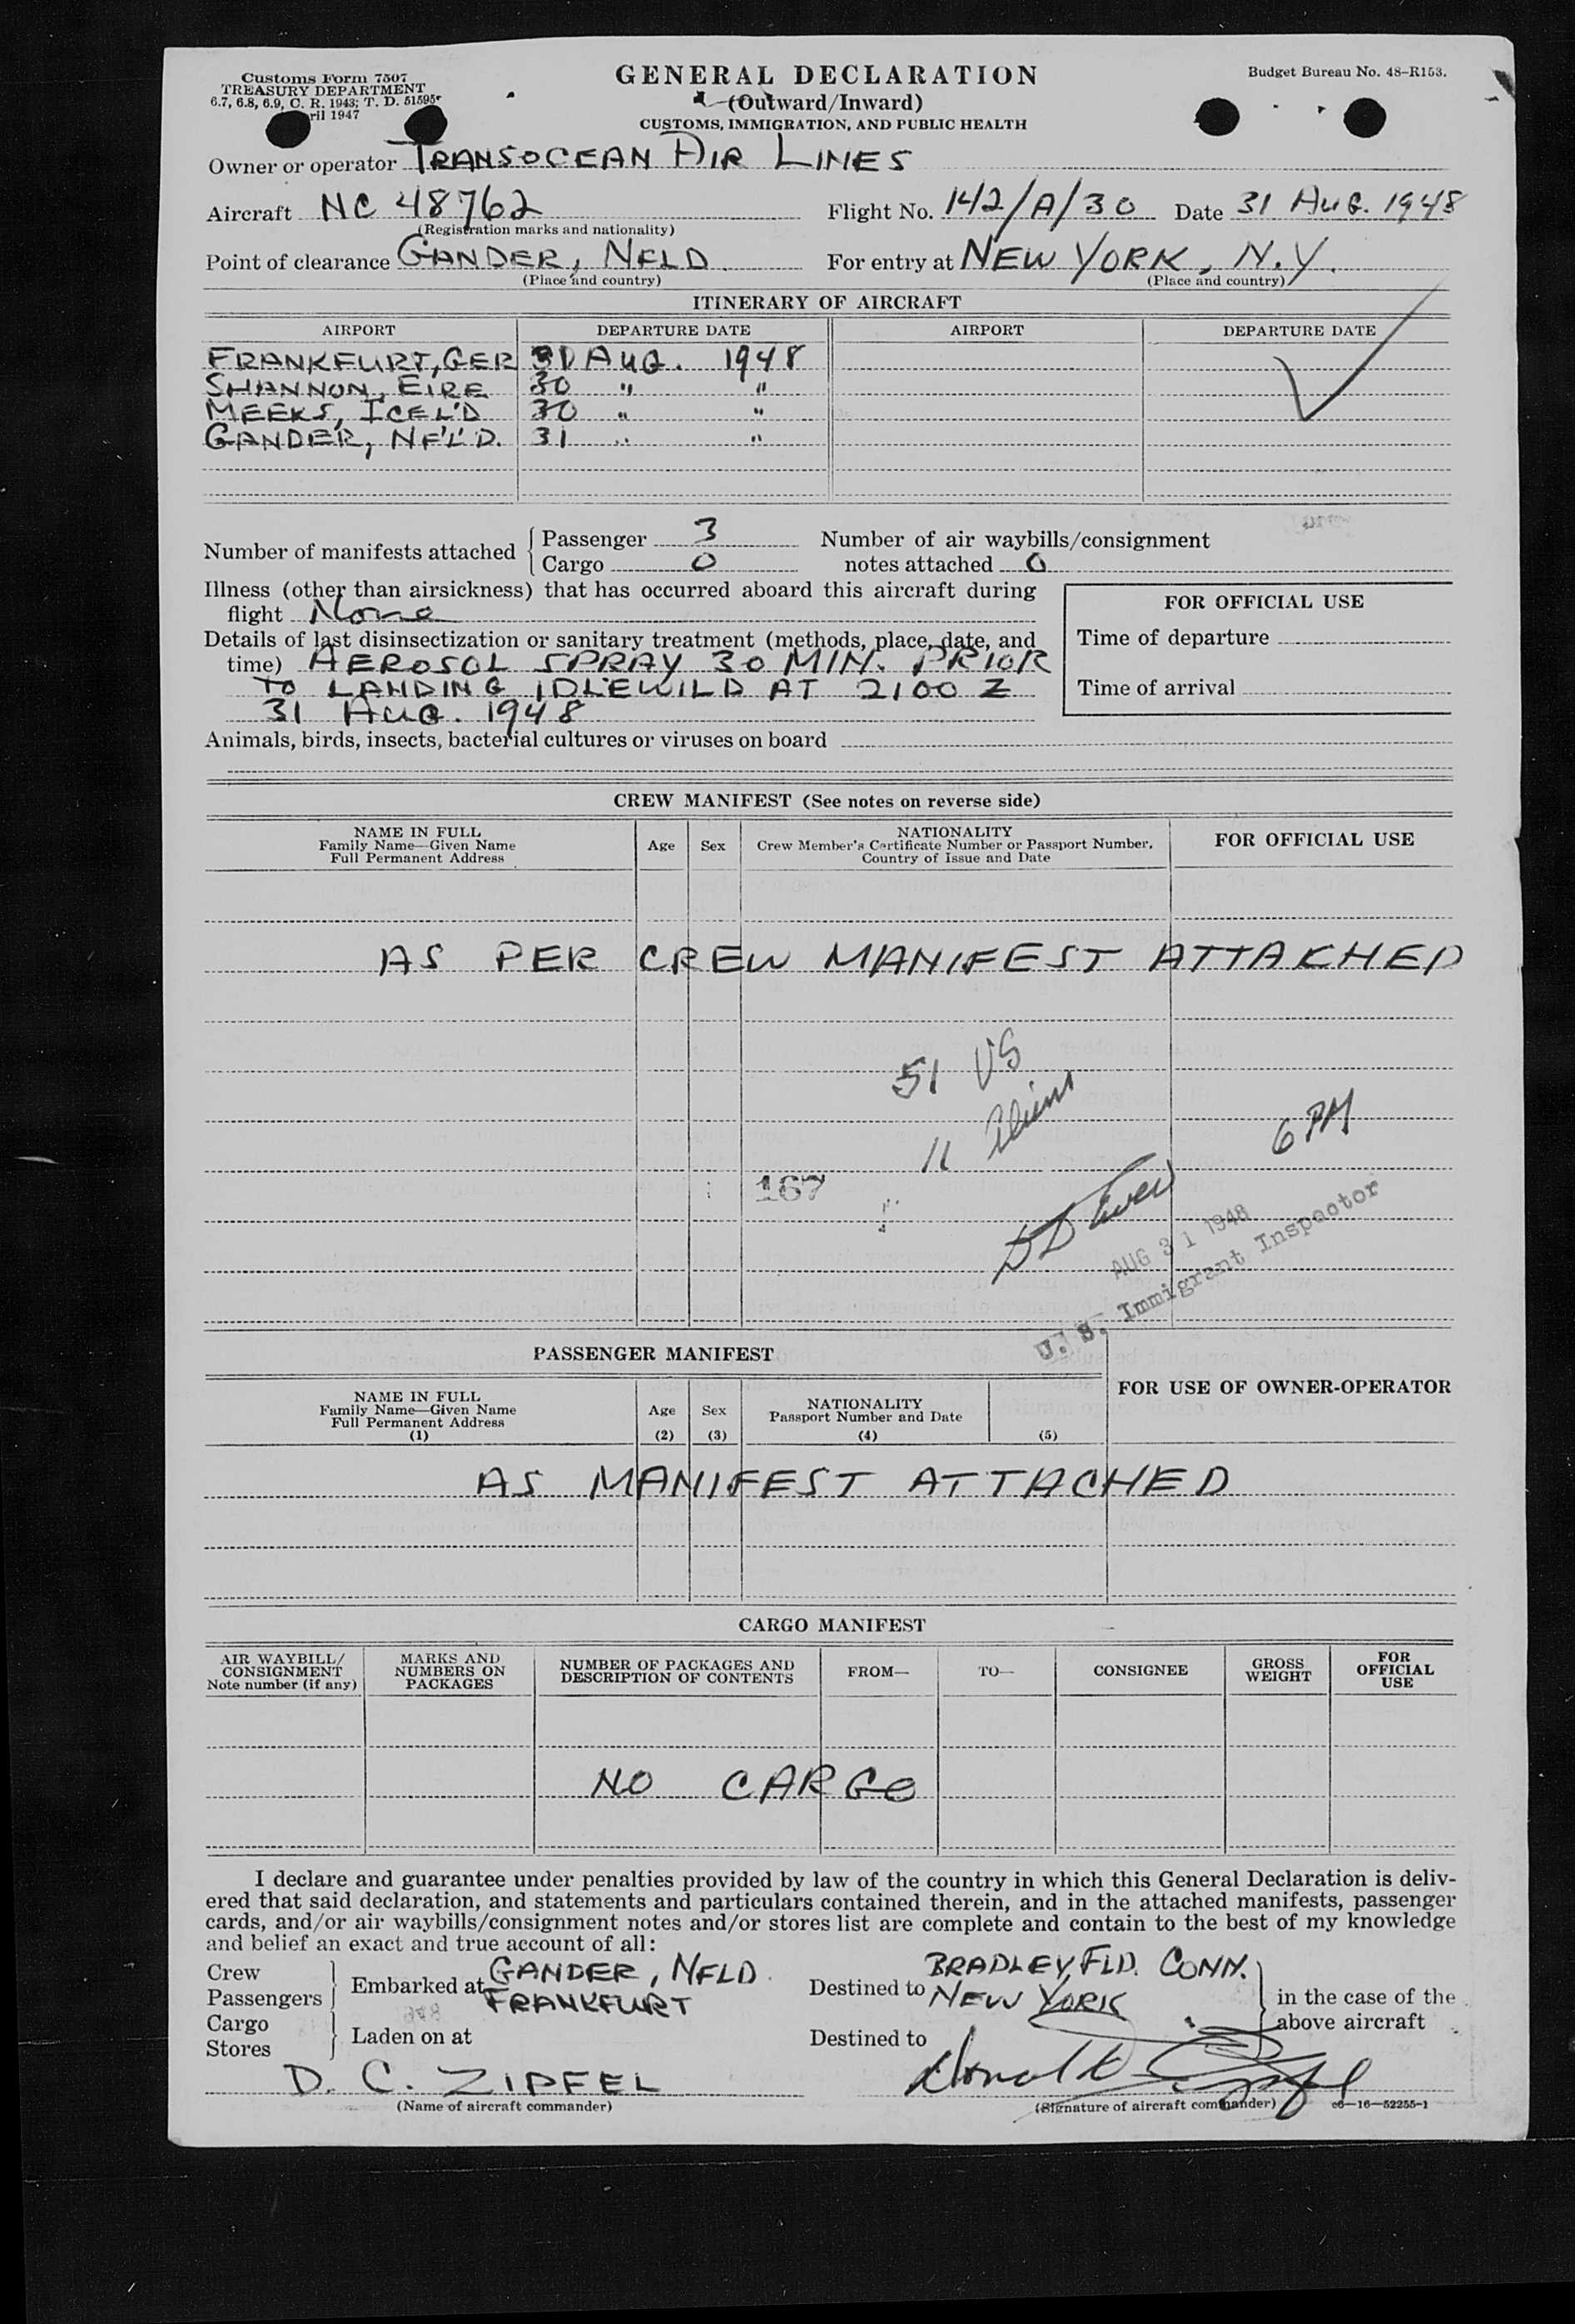 Customs Form 7507
TREASURY DEPARTMENT
6.7, 6.8, 6.9, C. R. 1943; T. D. 51595
ril 1947
GENERAL DECLARATION
(Outward/Inward)
CUSTOMS, IMMIGRATION, AND PUBLIC HEALTH
Budget Bureau No. 48-R153.
Owner or operator TRANSOCEAN AIR LINES
Aircraft NC 48762 Flight No. 142/A/30 Date 31 AUG. 1948
(Registration marks and nationality)
Point of clearance GANDER, NFLD. For entry at NEW YORK, N.Y.
(Place and country) (Place and country)
ITINERARY OF AIRCRAFT
AIRPORT DEPARTURE DATE AIRPORT DEPARTURE DATE
FRANKFURT, GER 30 AUG. 1948
SHANNON, EIRE 30 " "
MEEKS, ICEL'D 30 " "
GANDER, NF'L'D. 31 " "
Number of manifests attached { Passenger 3 Number of air waybills/consignment
Cargo 0 notes attached 0
Illness (other than airsickness) that has occurred aboard this aircraft during
flight None
FOR OFFICIAL USE
Details of last disinsectization or sanitary treatment (methods, place, date, and
Time of departure
time) AEROSOL SPRAY 30 MIN. PRIOR
TO LANDING IDLEWILD AT 2100 Z
Time of arrival
31 AUG. 1948
Animals, birds, insects, bacterial cultures or viruses on board
CREW MANIFEST (See notes on reverse side)
NAME IN FULL
Family Name—Given Name
Full Permanent Address
Age
Sex
NATIONALITY
Crew Member's Certificate Number or Passport Number,
Country of Issue and Date
FOR OFFICIAL USE
AS PER CREW MANIFEST ATTAKHED
51 US
11 Aliens
6 PM
167
AUG 31 1948
U. S. Immigrant Inspector
PASSENGER MANIFEST
FOR USE OF OWNER-OPERATOR
NAME IN FULL
Family Name—Given Name
Full Permanent Address
(1)
Age
(2)
Sex
(3)
NATIONALITY
Passport Number and Date
(4)
(5)
AS MANIFEST ATTACHED
CARGO MANIFEST
AIR WAYBILL/
CONSIGNMENT
Note number (if any)
MARKS AND
NUMBERS ON
PACKAGES
NUMBER OF PACKAGES AND
DESCRIPTION OF CONTENTS
FROM—
TO—
CONSIGNEE
GROSS
WEIGHT
FOR
OFFICIAL
USE
NO CARGO
I declare and guarantee under penalties provided by law of the country in which this General Declaration is deliv-
ered that said declaration, and statements and particulars contained therein, and in the attached manifests, passenger
cards, and/or air waybills/consignment notes and/or stores list are complete and contain to the best of my knowledge
and belief an exact and true account of all:
Crew
Passengers
Embarked at GANDER, NFLD.
FRANKFURT
Destined to BRADLEY FLD. CONN.
NEW YORK
in the case of the
above aircraft
Cargo
Stores
Laden on at
Destined to
D. C. ZIPFEL
Donald C Zipfel
(Name of aircraft commander)
(Signature of aircraft commander)
c6—16—52255-1